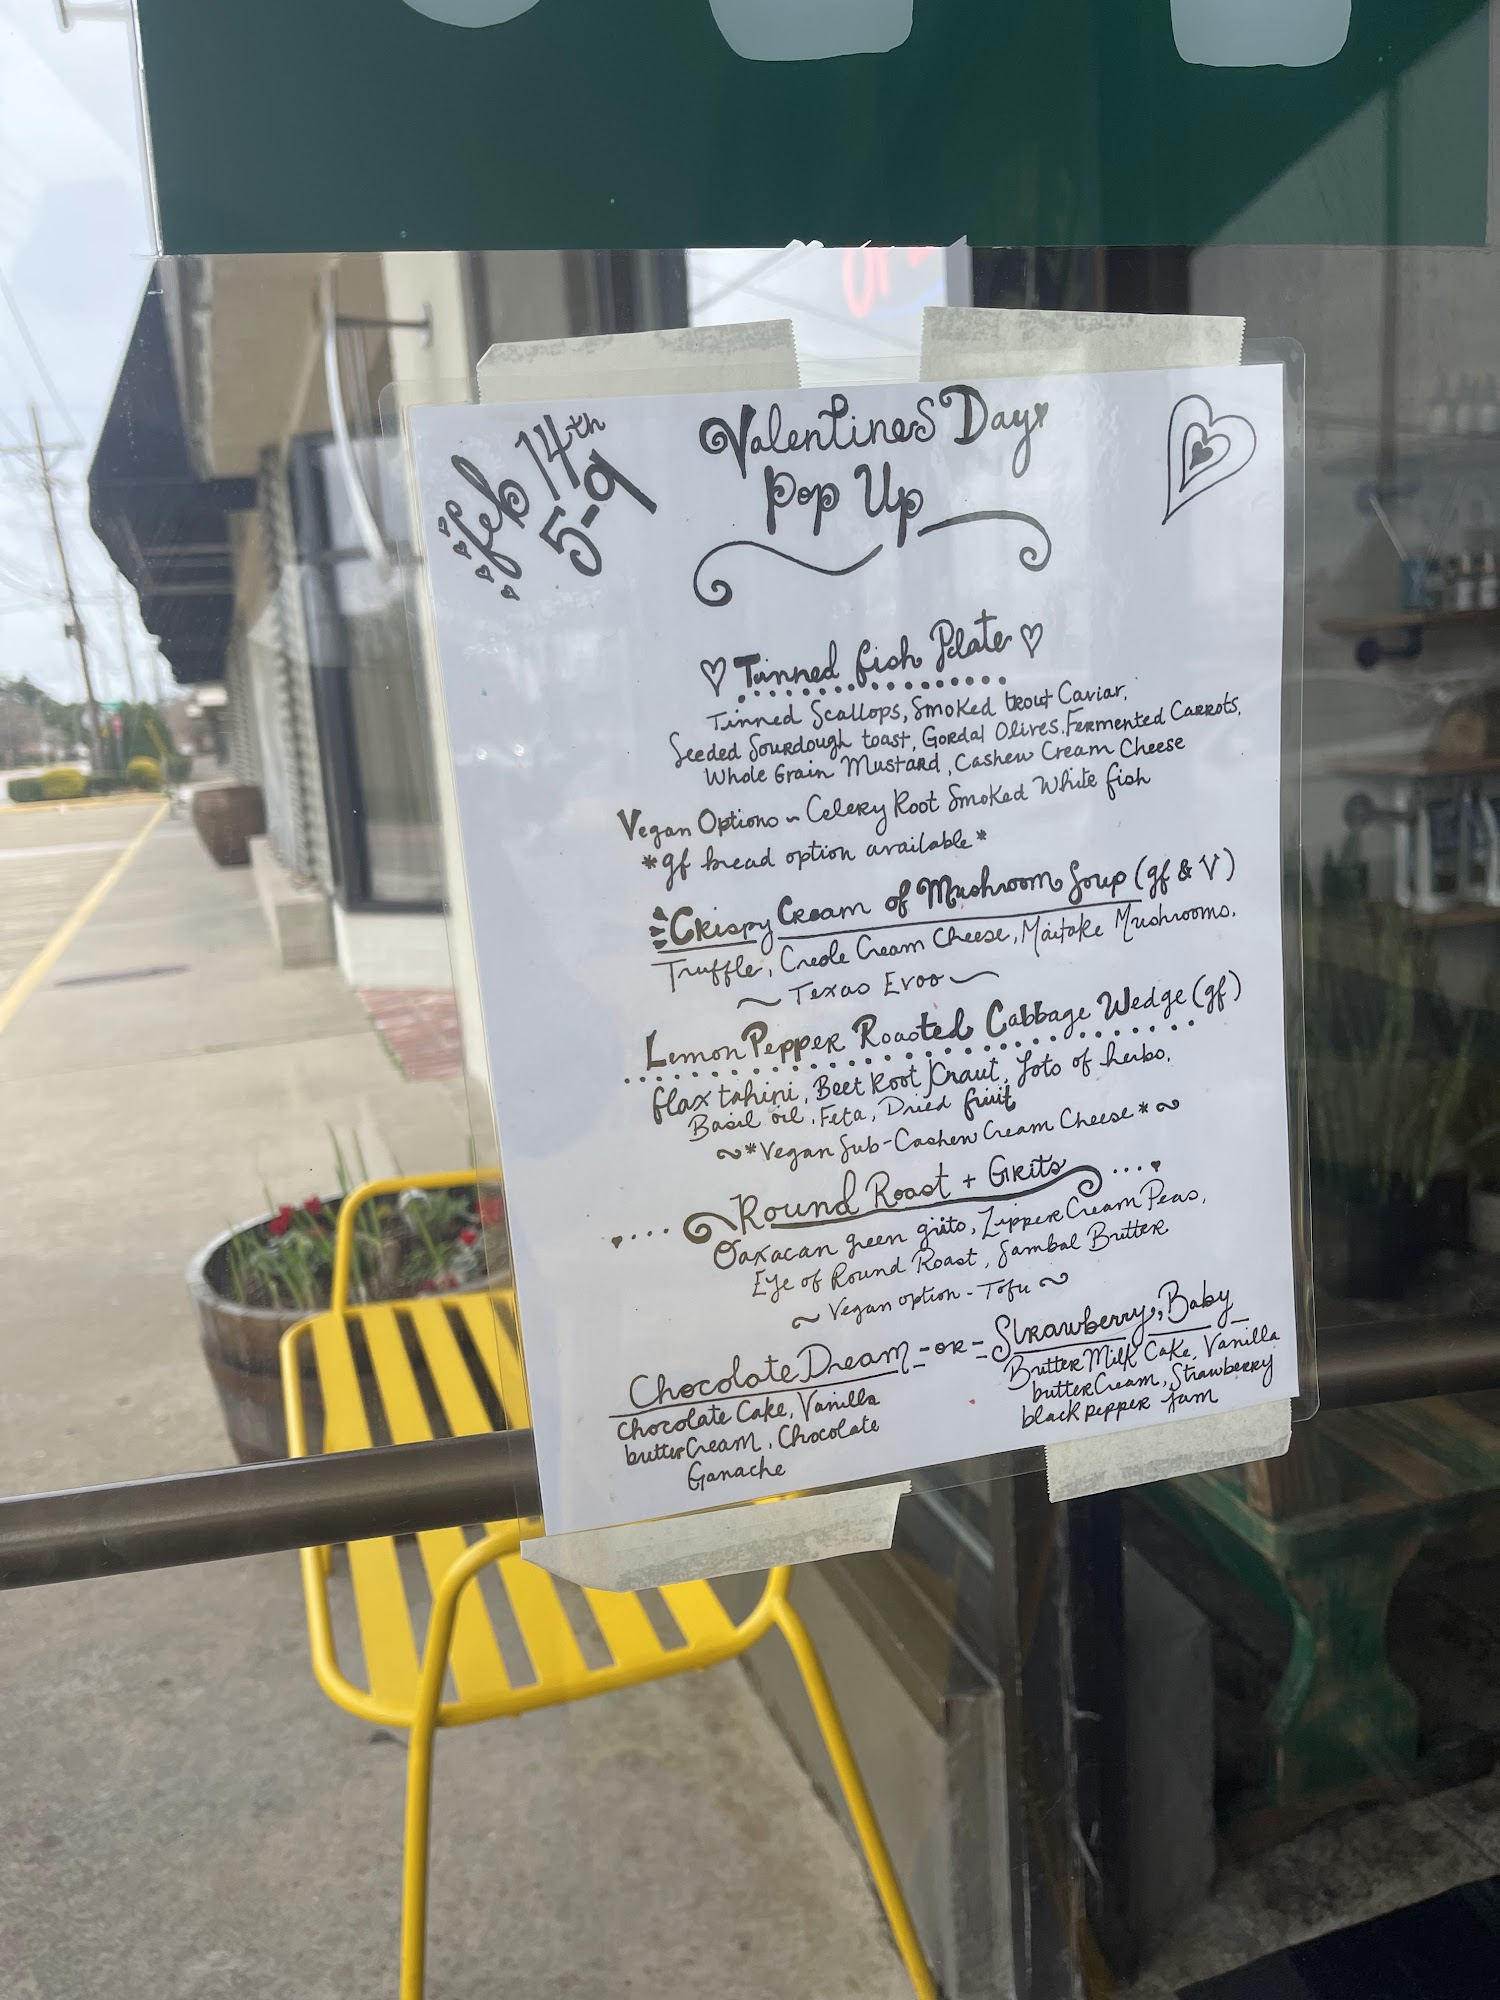 Feb 14th
5-9
Valentines Day
Pop Up
Tinned fish Plate
Tinned Scallops, Smoked trout Caviar,
Seeded Sourdough toast, Gordal Olives, Fermented Carrots,
Whole Grain Mustard, Cashew Cream Cheese
Vegan Options ~ Celery Root Smoked White fish
*gf bread option available*
Crispy Cream of Mushroom Soup (gf & V)
Truffle, Creole Cream Cheese, Maitake Mushrooms,
~ Texas Evoo ~
Lemon Pepper Roasted Cabbage Wedge (gf)
flax tahini, Beet Root Kraut, Lots of herbs,
Basil oil, Feta, Dried fruit
~*Vegan Sub-Cashew Cream Cheese*~
Round Roast + Grits
Oaxacan green grits, Zipper Cream Peas,
Eye of Round Roast, Sambal Butter
~ Vegan option - Tofu ~
Chocolate Dream -or- Strawberry, Baby
Chocolate Cake, Vanilla
butterCream, Chocolate
Ganache
Butter Milk Cake, Vanilla
butterCream, Strawberry
black pepper Jam